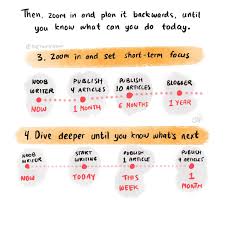 Then, zoom in and plan it backwards, until
you know what can you do today.
3. Zoom in and set short-term focus
NOOB WRITER
PUBLISH 4 ARTICLES
PUBLISH 10 ARTICLES
BLOGGER
NOW
1 MONTH
6 MONTHS
1 YEAR
4 Dive deeper until you know what's next
NOOB WRITER
START WRITING
PUBLISH 1 ARTICLE
PUBLISH 4 ARTICLES
NOW
TODAY
THIS WEEK
1 MONTH